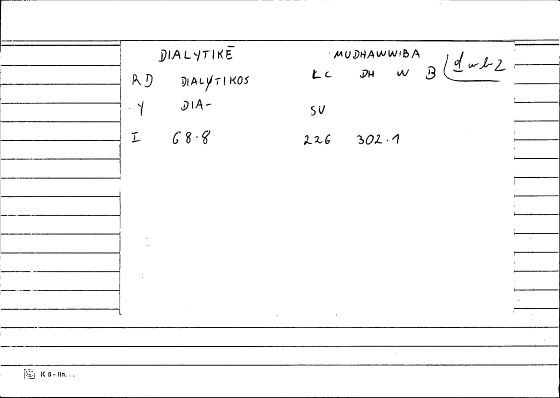 DIALYTIKĒ MUDHAWWIBA
RD DIALYTIKOS ŁC DH W B ḏwb2
Y DIA- SV
I 68.8 226 302.1
K 8-lin...